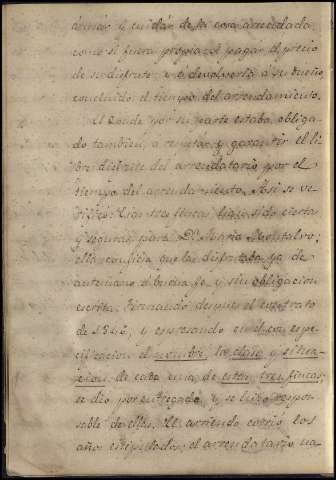 y cuidár de la cosa arrendada
como si fuera propia; á pagar el precio
de su disfrute, y á devolverla á su dueño
concluido el tiempo del arrendamiento.
El Conde por su parte estaba obliga-
do tambien, a respetar y garantir el li-
bre disfrute del arrendatario por el
tiempo del arrendamiento. Asi se ve-
rificó: Las tres fincas han sido ciertas
y seguras para Dª Maria Montalvo;
ella confiesa que las disfrutaba ya de
antemano á buena fe y sin obligacion
escrita. Formando despues el contrato
de 1842, y expresando en él con espe-
cificacion el nombre, la clase y situa-
cion de cada una de estas tres fincas,
se dió por entregada, y se hizo respon-
sable de ellas. El arriendo corrió los
años estipulados; el arrendatario na-